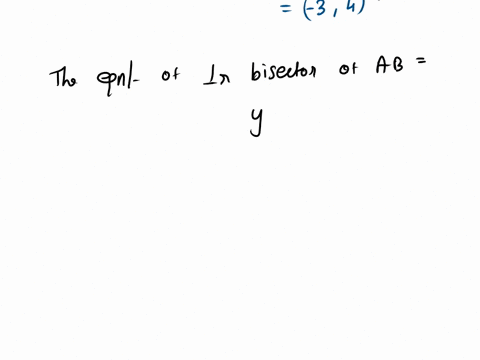 = (-3, 4)
The eqn/- of ⊥r bisector of AB =
y